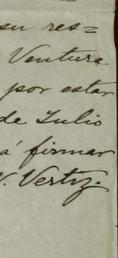 su res=
Ventura.
por estar
de Julio
á firmar
V. Vertiz.